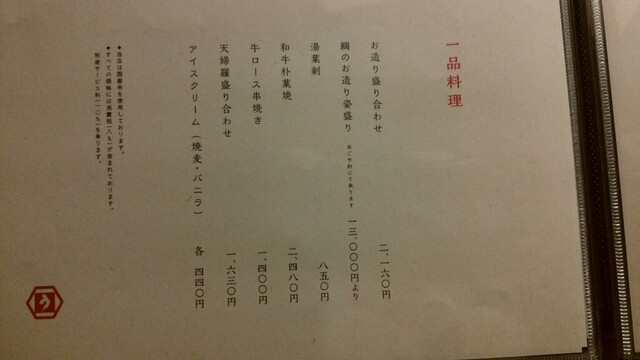 一品料理
お造り盛り合わせ 二、一六〇円
鯛のお造り姿盛り ※ご予約にて承ります 一三、〇〇〇円より
湯葉刺 八五〇円
和牛朴葉焼 二、四八〇円
牛ロース串焼き 一、四〇〇円
天婦羅盛り合わせ 一、六三〇円
アイスクリーム（焼麦・バニラ） 各 四四〇円
◆当店は国産米を使用しております。
◆すべての価格には消費税（八％）が含まれております。
別途サービス料（一〇％）を承ります。
う